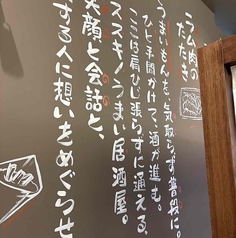 ラム肉の
たたき
うまいもんを、気取らず普段に。
ひと手間かけて、酒が進む。
ここは肩ひじ張らずに通える、
ススキノうまい居酒屋。
笑顔と会話と、
する人に想いをめぐらせ